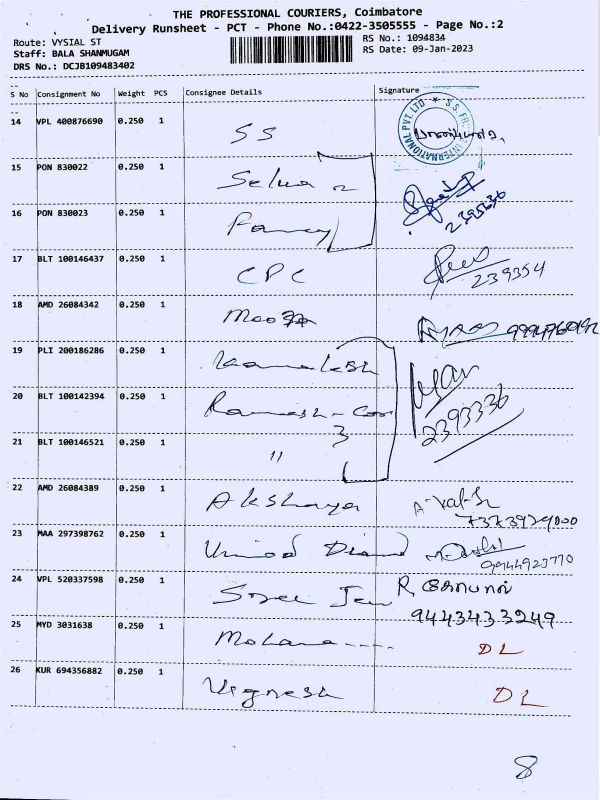 THE PROFESSIONAL COURIERS, Coimbatore
Delivery Runsheet - PCT - Phone No.:0422-3505555 - Page No.:2
Route: VYSIAL ST
RS No.: 1094834
Staff: BALA SHANMUGAM
RS Date: 09-Jan-2023
DRS No.: DCJB109483402
S No Consignment No Weight PCS Consignee Details Signature
14 VPL 400876690 0.250 1 SS
15 PON 830022 0.250 1 Selva
16 PON 830023 0.250 1 Fancy 2395636
17 BLT 100146437 0.250 1 CPC 239354
18 AMD 26084342 0.250 1
19 PLI 200186286 0.250 1 Kamalesh
20 BLT 100142394 0.250 1 Ramesh - 2393336
3
21 BLT 100146521 0.250 1 "
22 AMD 26084389 0.250 1 Akshaya
7373929000
23 MAA 297398762 0.250 1 Vinod Diamd
9944923770
24 VPL 520337598 0.250 1 Sree Jew R
9443433249
25 MYD 3031638 0.250 1 Mohana ---- DL
26 KUR 694356882 0.250 1 Vignesh DL
8